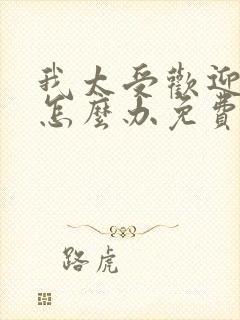 我太受歡迎
怎麼办免費
路虎